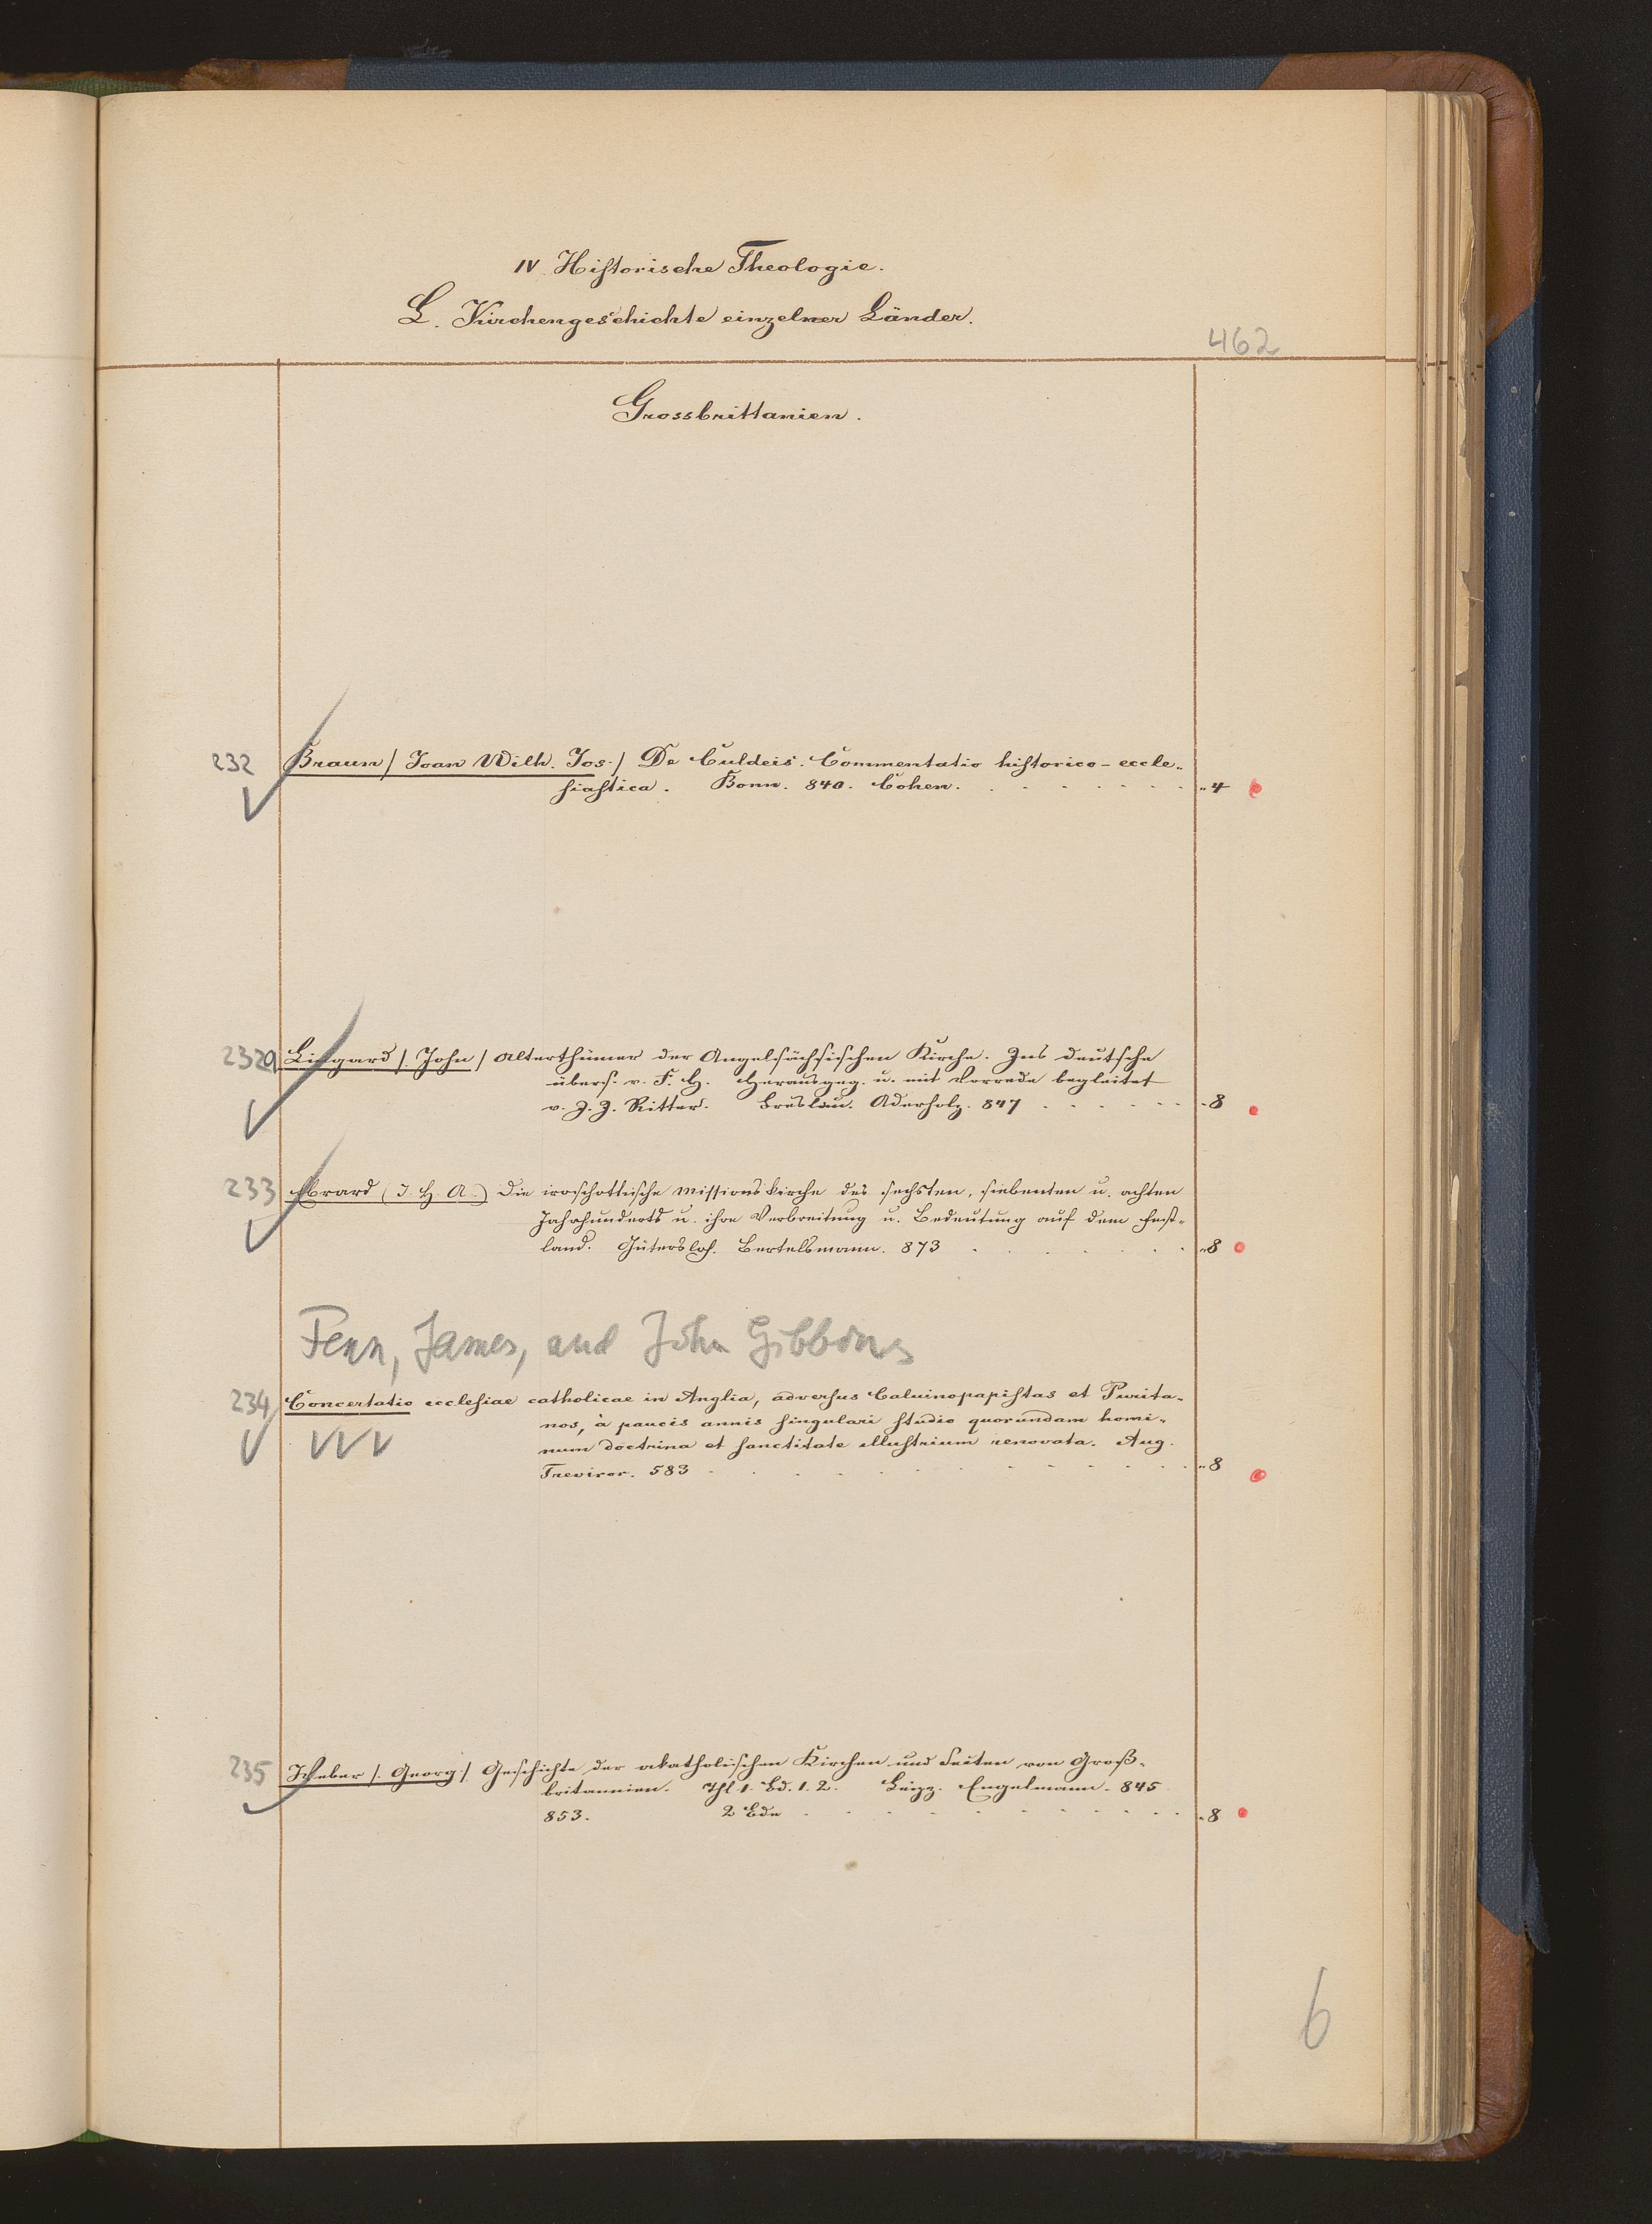 IV. Historische Theologie.
L. Kirchengeschichte einzelner Länder.
462
Grossbrittanien.
232 Braun /. Joan Wilh. Jos./ De Culdeis. Commentatio historico-eccle-
siastica. Bonn. 840. Cohen. 4
232a Lingard /. John / Alterthümer der Angelsächsischen Kirche. Ins Deutsche
übers. v. F. H. Herausgeg. u. mit Vorrede begleitet
v. J. J. Ritter. Breslau. Aderholz. 847 8
233 Ebrard (J. H. A.) Die iroschottische Missionskirche des sechsten, siebenten u. achten
Jahrhunderts u. ihre Verbreitung u. Bedeutung auf dem Fest-
land. Gütersloh. Bertelsmann. 873 8
Fenn, James, and John Gibbons
234 Concertatio ecclesiae catholicae in Anglia, adversus Caluinopapistas et Purita-
nos, à paucis annis singulari studio quorundam homi-
num doctrina et sanctitate illustrium renovata. Aug.
Treviror. 583 8
235 Weber /. Georg / Geschichte der akatholischen Kirchen und Secten von Groß-
britannien. Thl 1. Bd. 1. 2. Leipz. Engelmann. 845
853. 2 Bde 8
6